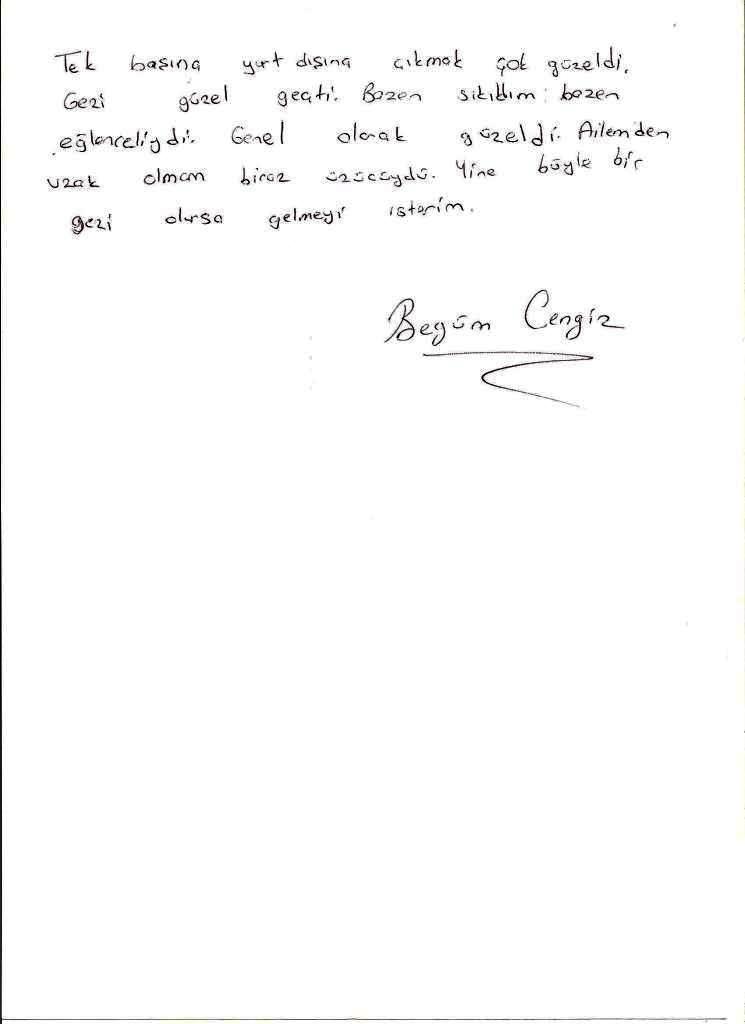 Tek başına yurt dışına çıkmak çok güzeldi.
Gezi güzel geçti. Bazen sıkıldım bazen
eğlenceliydi. Genel olarak güzeldi. Ailemden
uzak olmam biraz üzücüydü. Yine böyle bir
gezi olursa gelmeyi isterim.
Begüm Cengiz